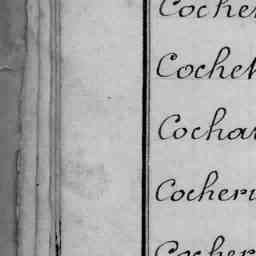 Coche
Coche
Cocha
Cocheri
Cocher